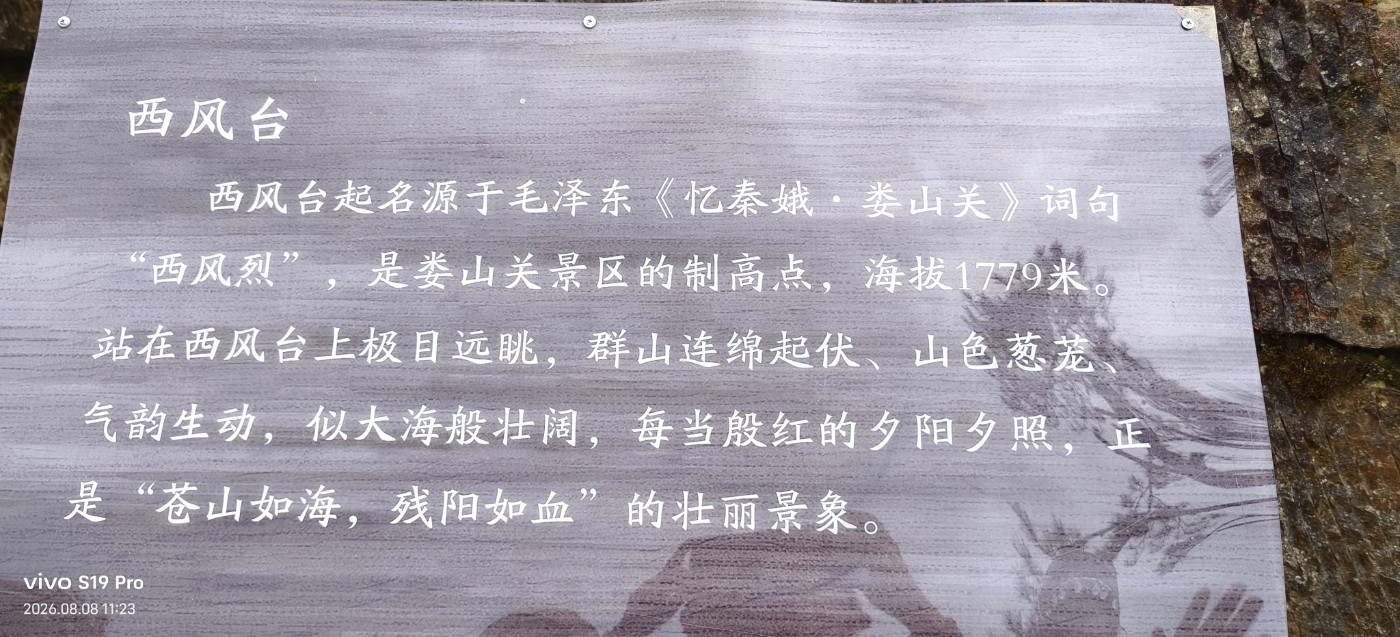 西风台
西风台起名源于毛泽东《忆秦娥·娄山关》词句
“西风烈”，是娄山关景区的制高点，海拔1779米。
站在西风台上极目远眺，群山连绵起伏、山色葱茏、
气韵生动，似大海般壮阔，每当殷红的夕阳夕照，正
是“苍山如海，残阳如血”的壮丽景象。
vivo S19 Pro
2026.08.08 11:23